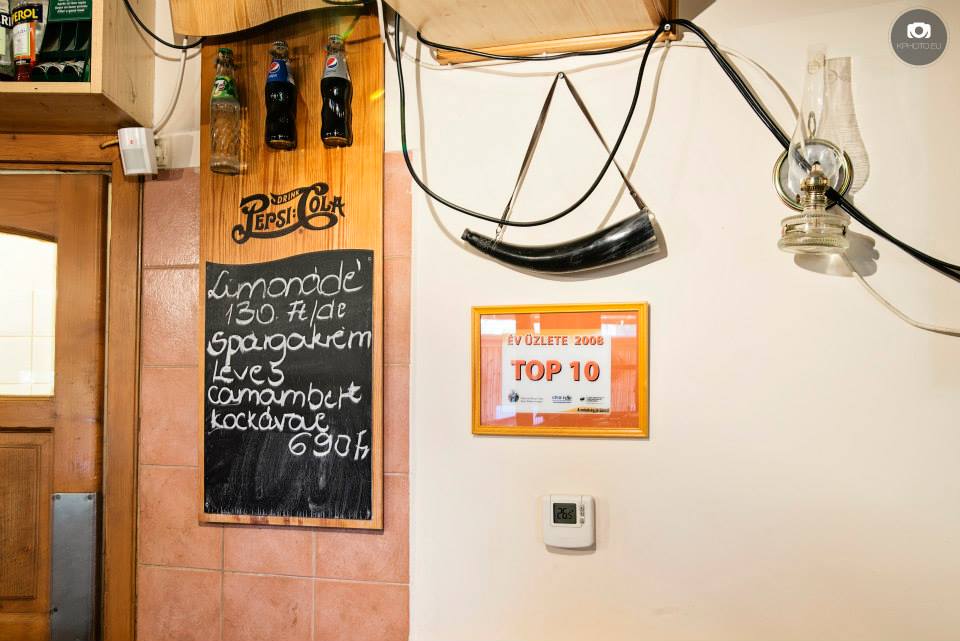 EROL
KPHOTO.EU
DRINK
PEPSI:COLA
Limonádé
130. Ft/dc
Spárgakrém
leves
camambert
kockával
690Ft
ÉV ÜZLETE 2008
TOP 10
26.5